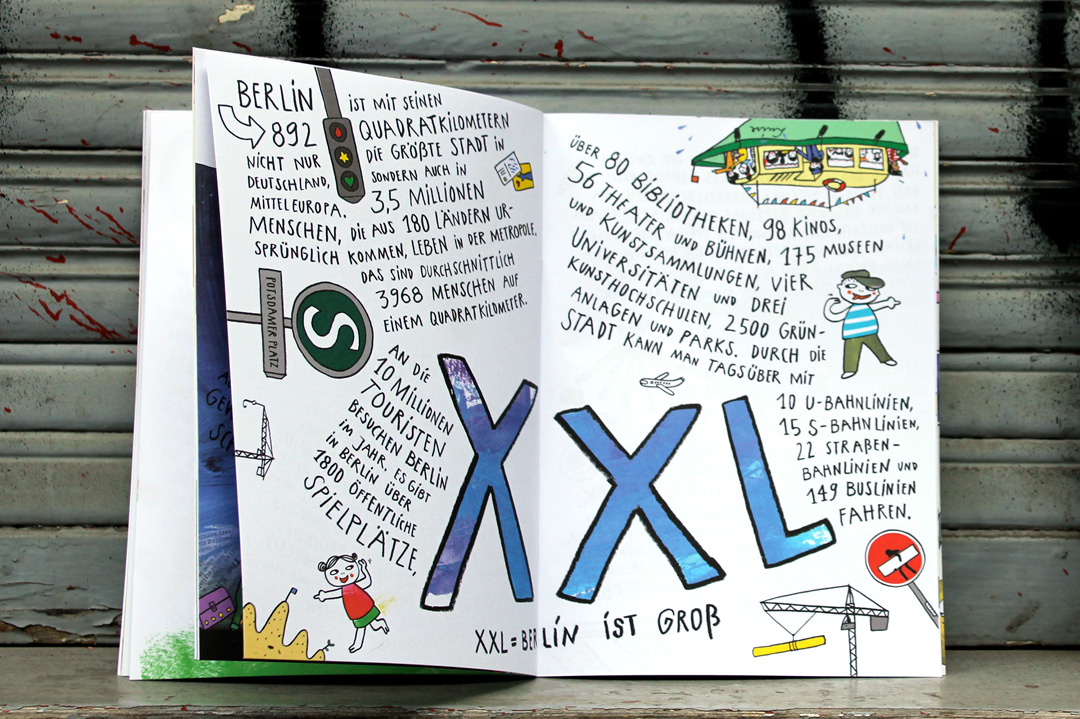 BERLIN IST MIT SEINEN
892 QUADRATKILOMETERN
NICHT NUR DIE GRÖßTE STADT IN
DEUTSCHLAND, SONDERN AUCH IN
MITTELEUROPA. 3,5 MILLIONEN
MENSCHEN, DIE AUS 180 LÄNDERN UR-
SPRÜNGLICH KOMMEN, LEBEN IN DER METROPOLE.
DAS SIND DURCHSCHNITTLICH
3968 MENSCHEN AUF
EINEM QUADRATKILOMETER.
POTSDAMER PLATZ
S
AN DIE
10 MILLIONEN
TOURISTEN
BESUCHEN BERLIN
IM JAHR. ES GIBT
IN BERLIN ÜBER
1800 ÖFFENTLICHE
SPIELPLÄTZE,
Luise
ÜBER 80 BIBLIOTHEKEN, 98 KINOS,
56 THEATER UND BÜHNEN, 175 MUSEEN
UND KUNSTSAMMLUNGEN, VIER
UNIVERSITÄTEN UND DREI
KUNSTHOCHSCHULEN, 2500 GRÜN-
ANLAGEN UND PARKS. DURCH DIE
STADT KANN MAN TAGSÜBER MIT
10 U-BAHNLINIEN,
15 S-BAHNLINIEN,
22 STRAßEN-
BAHNLINIEN UND
149 BUSLINIEN
FAHREN.
XXL
XXL = BERLIN IST GROß